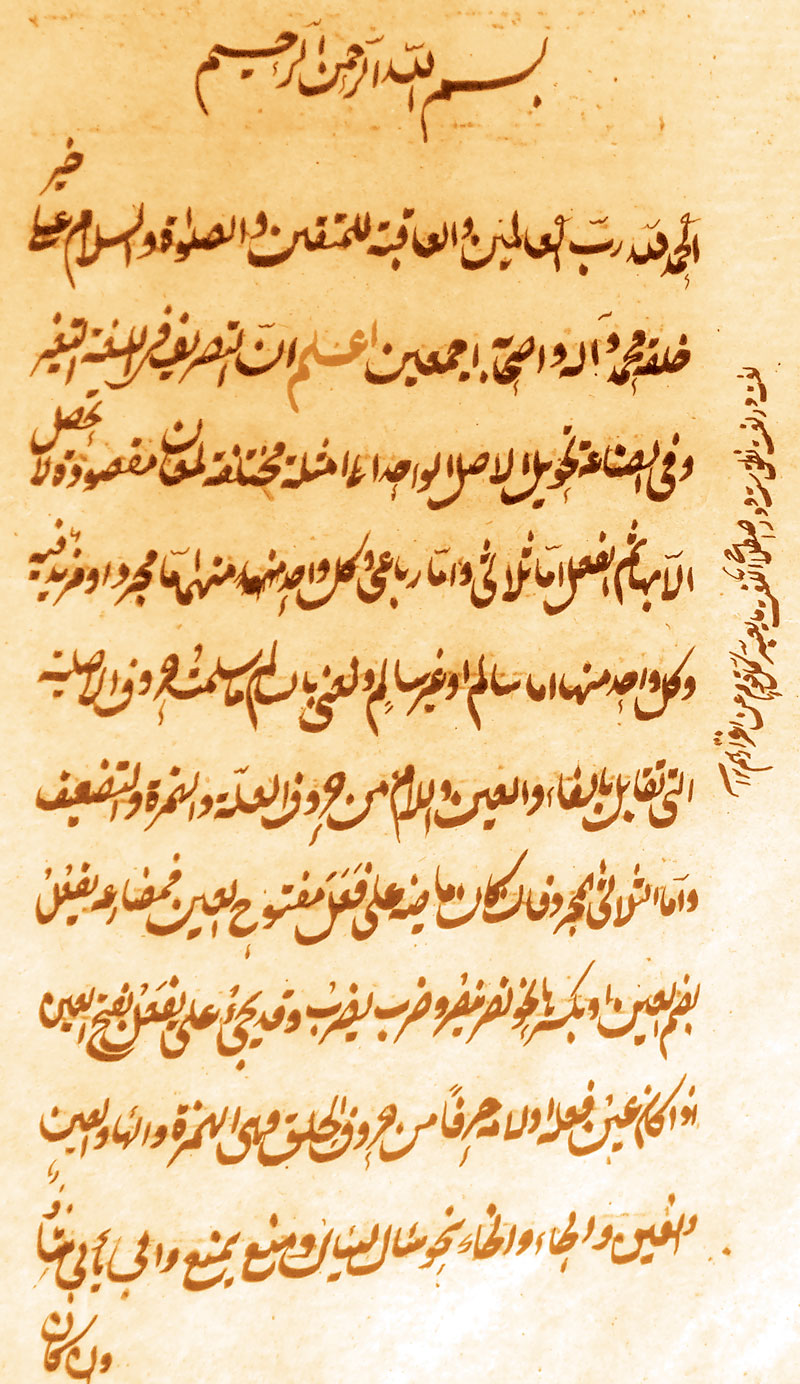 بسم الله الرحمن الرحيم
الحمد لله رب العالمين والعاقبة للمتقين والصلوة والسلام على خير
خلقه محمد وآله واصحابه اجمعين اعلم ان التصريف في اللغة التغير
وفي الصناعة تحويل الاصل الواحد الى امثلة مختلفة لمعان مقصودة لا تحصل
الا بها ثم الفعل اما ثلاثى واما رباعى وكل واحد منهما اما مجرد او مزيد فيه
وكل واحد منها اما سالم او غير سالم ونعنى بالسالم ما سلمت حروف الاصلية
التى تقابل بالفاء والعين واللام من حروف العلة والهمزة والتضعيف
واما الثلاثى المجرد فان كان ماضيه على فَعَلَ مفتوح العين فمضارعه يفعُلُ
بضم العين او بكسرها نحو نصر ينصُر وضرب يضرِبُ وقد يجىءُ على يفعَلُ بفتح العين
اذا كان عين فعله او لامه حرفًا من حروف الحلق وهى الهمزة والهاء والعين
والغين والحاء والخاء نحو سأل يسأل ومنع يمنع وابى يأبى شاذ
وان كان